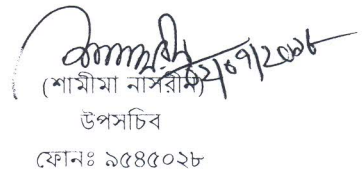 ০২/০৭/২০১৮
(শামীমা নাসরীন)
উপসচিব
ফোনঃ ৯৫৪৫০২৮